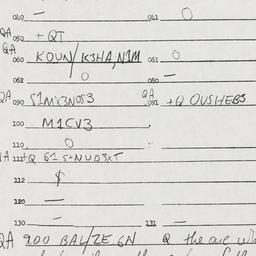 040 — 041 O
QA 050 + QT
QA 060 KOUN/K3HA,N1M 061 O
062 O 080 —
QA 090 S1MX3N0S3 QA 091 +Q OUSHEBS
100 M1CV3
110 O
111 +Q 61 S+NUD3XT
112 $
120 —
130 — 131 —
QA 900 BAL/ZE GN Q the one